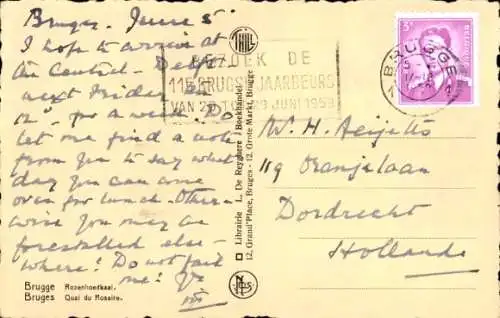 Bruges. June 5
I hope to arrive at
the Central - Delft
next Friday
12". for a week. Do
let me find a note
from you to say what
day you can come
over for lunch. Other-
wise you may be
forestalled else-
where! Do not fail
me! Yrs
THILL
BEZOEK DE
11e BRUGSE JAARBEURS
VAN 20 TOT 29 JUNI 1959
BRUGGE
3F
W. H.
119 Oranjelaan
Dordrecht
Holland
Librairie L. De Reyghere Boekhandel
12, Grand'Place, Bruges - 12, Grote Markt, Brugge
NELS
Brugge Rozenhoedkaai.
Bruges Quai du Rosaire.